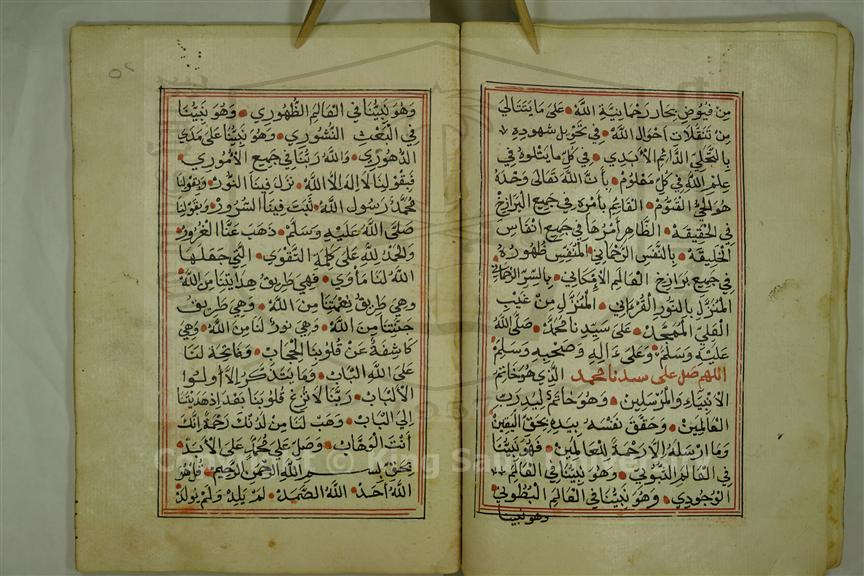 من فيوض بحار رحمانية الله على ما يتتالى
من تنقلات احوال الله في تحويل شهوده
بالتجلي الدائم الابدي في كل ما يتلوه في
علم الله في كل معلوم بأن الله تعالى وحده
هو الحي القيوم القائم بأمره في جميع البرازخ
في الحقيقة الظاهر أمرها في جميع انفاس
الخليقة بالنفس الرحماني المتنفس ظهوره
في جميع برازخ العالم الامكاني بالسر الرحماني
المنزل بالنور القرءاني المنزل من غيب
العلي على سيدنا محمد صلى الله
عليه وسلم وعلى ءاله وصحبه وسلم
اللهم صل على سيدنا محمد الذي هو خاتم
الانبياء والمرسلين وهو خاتم
العالمين وحقق نفسه بيده بحق اليقين
وما ارسله الا رحمة للعالمين فهو نبينا
في العالم النبوي وهو نبينا في العالم
الوجودي وهو نبينا في العالم البطوني
وهو نبينا
٢٥
وهو نبينا في العالم الظهوري وهو نبينا
في البعث النشوري وهو نبينا على مدى
الدهوري والله ربنا في جميع الأموري
فبقولنا لا اله الا الله نزل فينا النور وبقولنا
محمد رسول الله ثبت فينا السرور وبقولنا
صلى الله عليه وسلم ذهب عنا الغرور
والحمد لله على كلمة التقوى التي جعلها
الله لنا مأوى فهي طريق هدايتنا من الله
وهي طريق نعمتنا من الله وهي طريق
جنتنا من الله وهي نور لنا من الله وهي
كاشفة عن قلوبنا الحجاب وفاتحة لنا
على الله الباب وما يتذكر الا أولوا
الألباب ربنا لا تزغ قلوبنا بعد اذ هديتنا
الى الباب وهب لنا من لدنك رحمة انك
أنت الوهاب وصل على محمد على الأبد
بحق بسم الله الرحمن الرحيم قل هو
الله أحد الله الصمد لم يلد ولم يولد